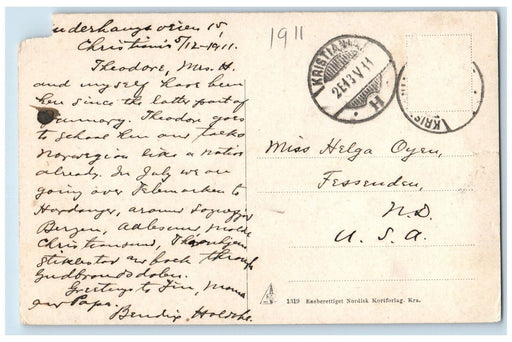 underhaugsveien 15,
Christiania 5/12-1911.
Theodore, Mrs. H.
and myself have been
here since the latter part of
January. Theodore goes
to School here and talks
Norwegian like a native
already. In July we are
going over Telemarken to
Hardanger, around Sogne
Bergen, Aalesund, Molde
Christiansund, Thronhjem
Stiklestad and back through
Gudbrandsdalen.
Greetings to Finn, Mama
and Papa.
Bendix Holdahl
1911
KRISTIANIA
25 13 V 11
H
KRIS
Miss Helga Oyen,
Fessenden,
N.D.
U.S.A.
1319 Eneberettiget Nordisk Kortforlag. Kra.